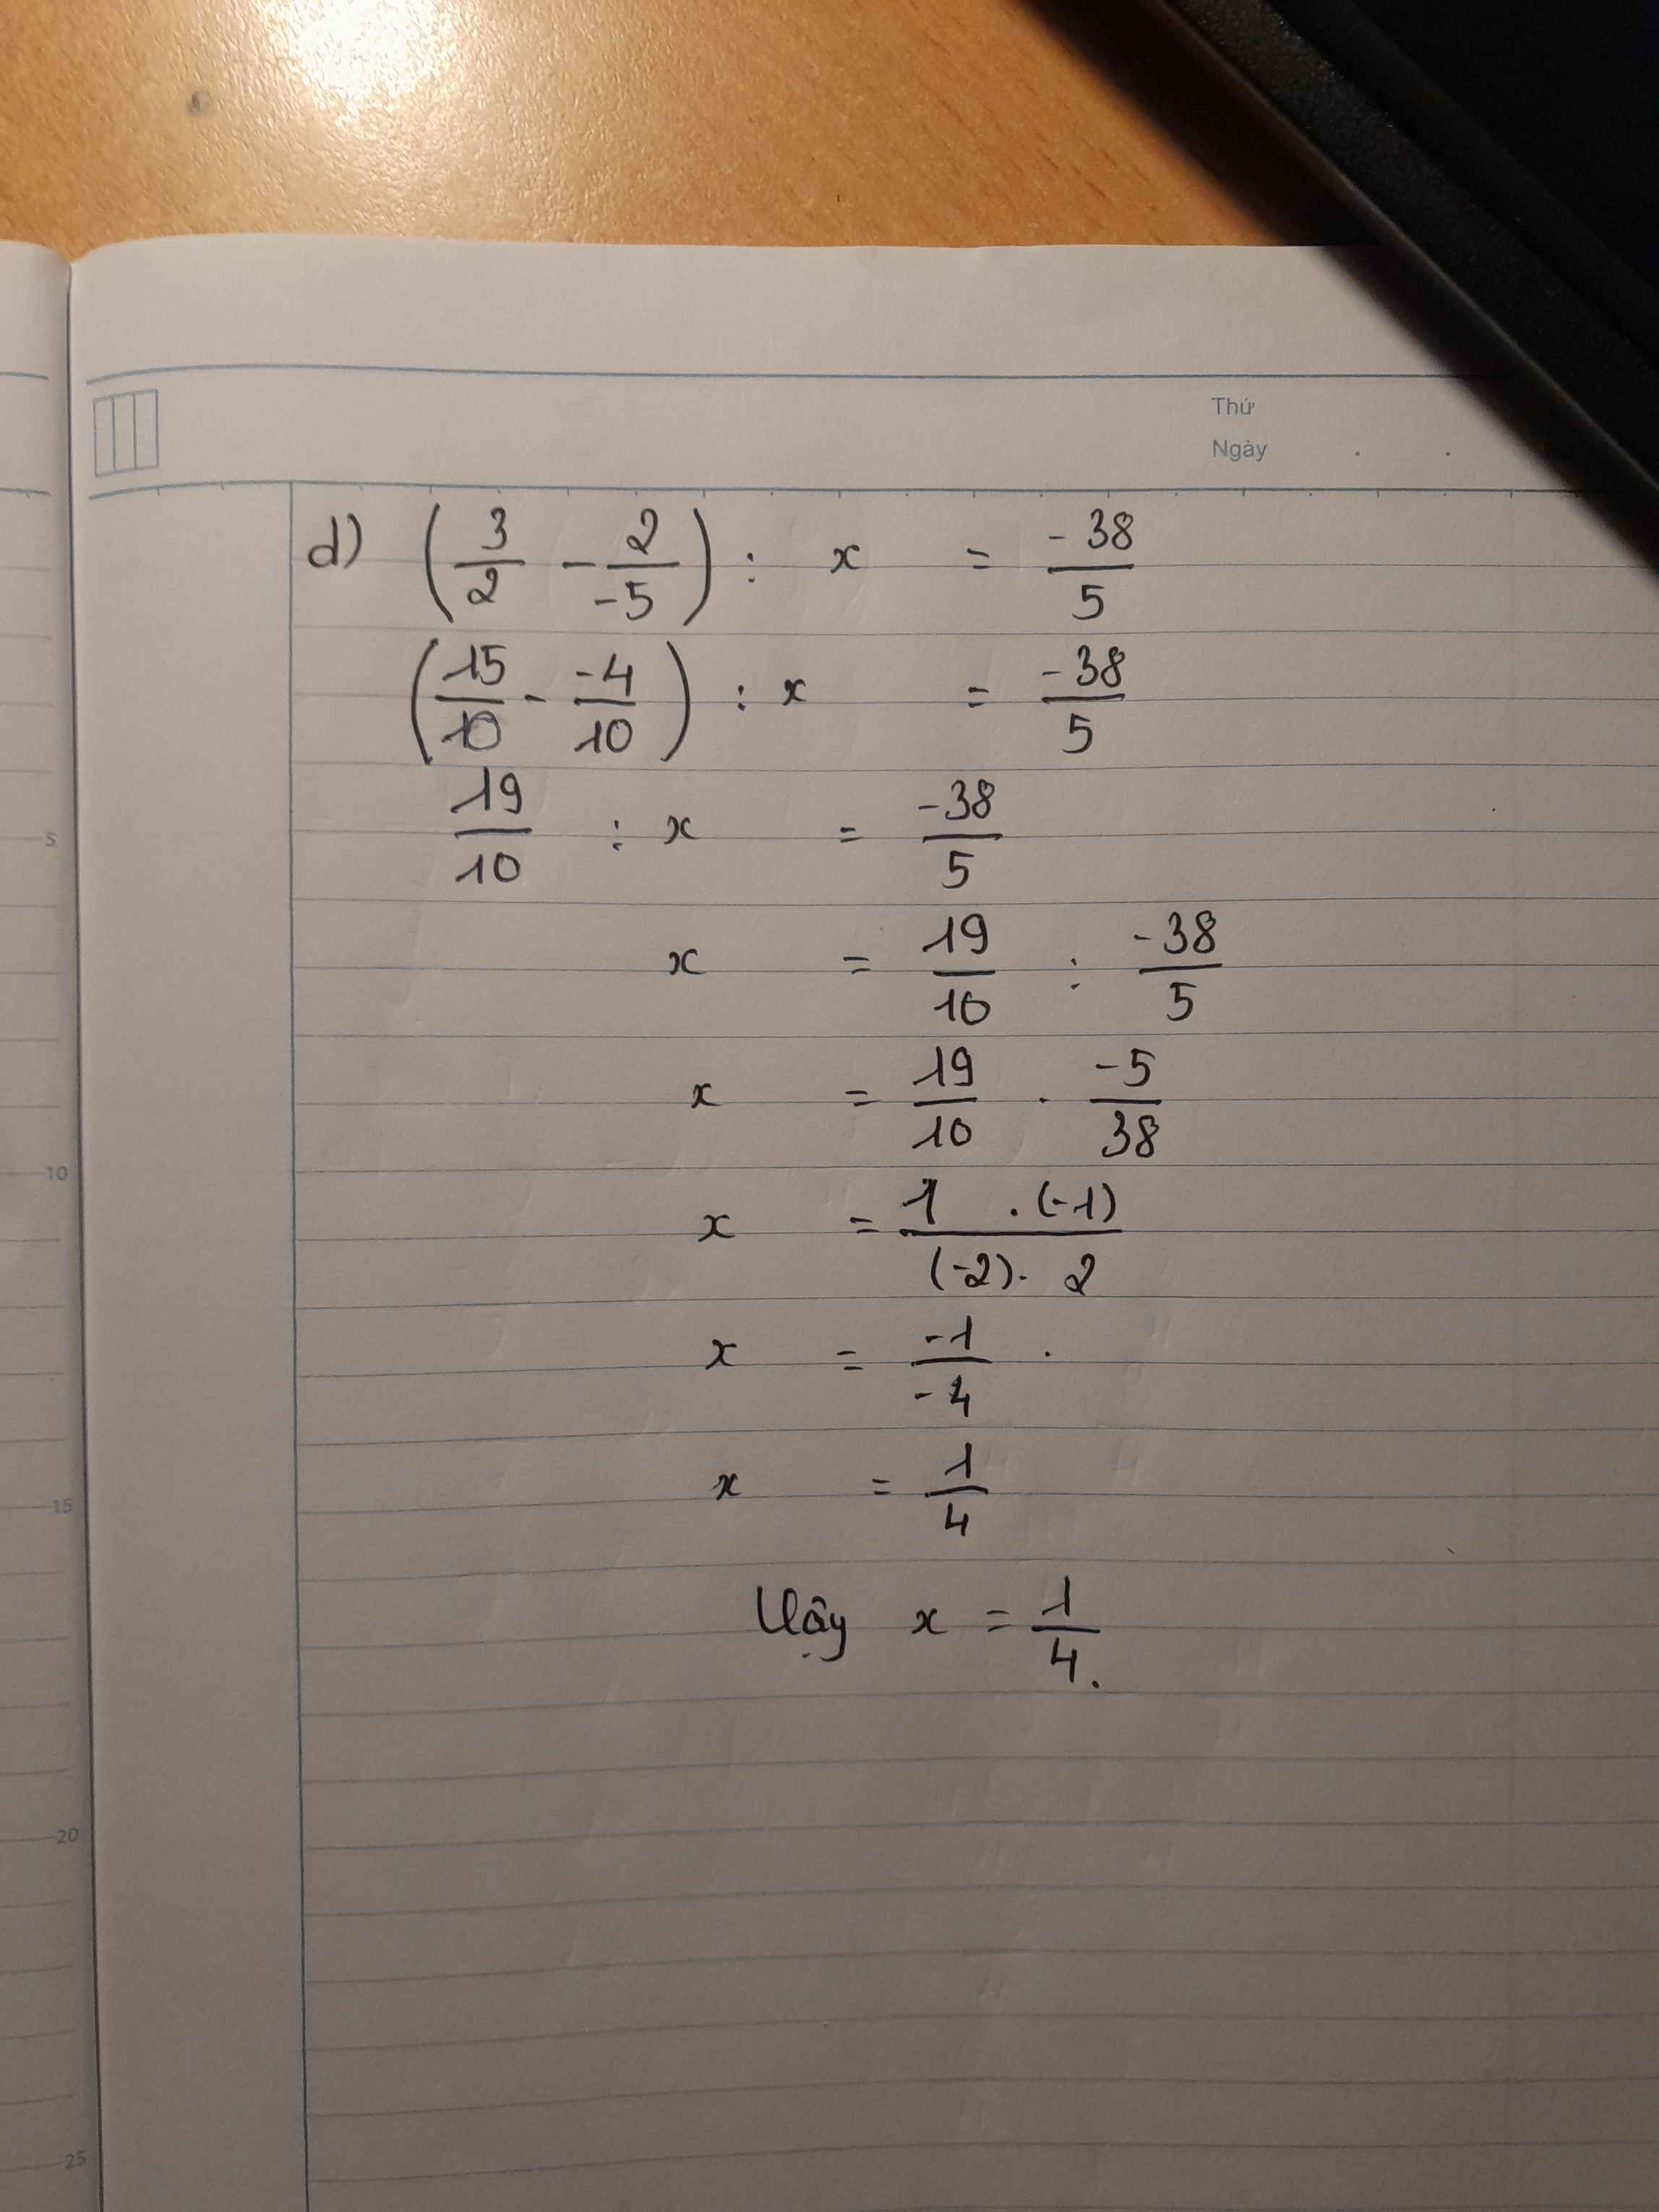 Thứ
Ngày
d) (3/2 - 2/-5) : x = -38/5
(15/10 - -4/10) : x = -38/5
19/10 : x = -38/5
x = 19/10 : -38/5
x = 19/10 . -5/38
x = 1 . (-1)/(-2). 2
x = -1/-4
x = 1/4
Vậy x = 1/4.
5
10
15
20
25